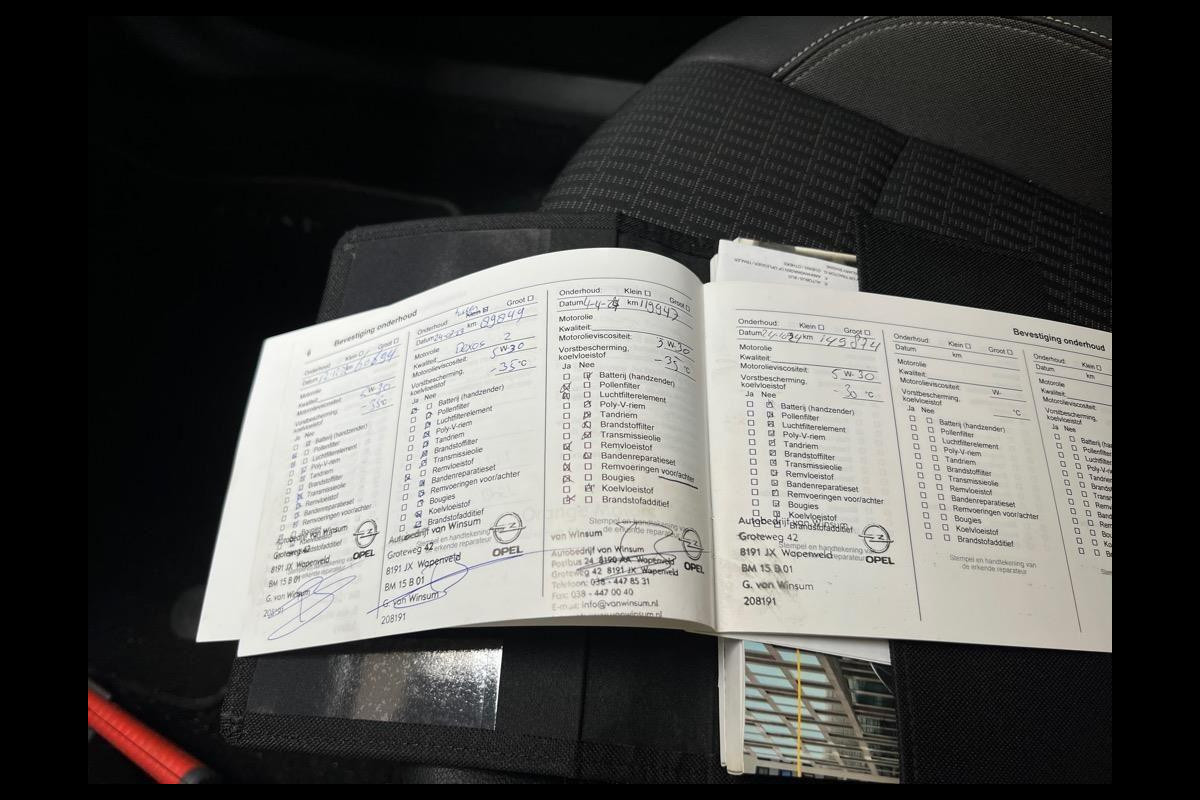 6 Bevestiging onderhoud
Onderhoud: Klein Groot
Datum km
Motorolie
Kwaliteit:
Motorolieviscositeit: 5W-30
Vorstbescherming, koelvloeistof -35°C
Ja Nee
Batterij (handzender)
Pollenfilter
Luchtfilterelement
Poly-V-riem
Tandriem
Brandstoffilter
Transmissieolie
Remvloeistof
Bandenreparatieset
Remvoeringen voor/achter
Autobedrijf van Winsum
Groteweg 42
8191 JX Wapenveld
BM 15 B 01
G. van Winsum
208191
OPEL
Onderhoud: Klein Groot
Datum km: 89849
Motorolie
Kwaliteit: Dexos 2
Motorolieviscositeit: 5W-30
Vorstbescherming, koelvloeistof -35°C
Ja Nee
Batterij (handzender)
Pollenfilter
Luchtfilterelement
Poly-V-riem
Tandriem
Brandstoffilter
Transmissieolie
Remvloeistof
Bandenreparatieset
Remvoeringen voor/achter
Bougies
Koelvloeistof
Brandstofadditief
Autobedrijf van Winsum
Groteweg 42
8191 JX Wapenveld
BM 15 B 01
G. van Winsum
208191
OPEL
Onderhoud: Klein Groot
Datum km 119947
Motorolie
Kwaliteit:
Motorolieviscositeit: 5W-30
Vorstbescherming, koelvloeistof -35°C
Ja Nee
Batterij (handzender)
Pollenfilter
Luchtfilterelement
Poly-V-riem
Tandriem
Brandstoffilter
Transmissieolie
Remvloeistof
Bandenreparatieset
Remvoeringen voor/achter
Bougies
Koelvloeistof
Brandstofadditief
Stempel en handtekening van
de erkende reparateur
van Winsum
Autobedrijf van Winsum
Postbus 24 8190 AA Wapenveld
Groteweg 42 8191 JX Wapenveld
Telefoon: 038 - 447 85 31
Fax: 038 - 447 00 40
E-mail: info@vanwinsum.nl
OPEL
Onderhoud: Klein Groot
Datum km 149874
Motorolie
Kwaliteit:
Motorolieviscositeit: 5W-30
Vorstbescherming, koelvloeistof -30°C
Ja Nee
Batterij (handzender)
Pollenfilter
Luchtfilterelement
Poly-V-riem
Tandriem
Brandstoffilter
Transmissieolie
Remvloeistof
Bandenreparatieset
Remvoeringen voor/achter
Bougies
Koelvloeistof
Brandstofadditief
Stempel en handtekening van
de erkende reparateur
Autobedrijf van Winsum
Groteweg 42
8191 JX Wapenveld
BM 15 B 01
G. van Winsum
208191
OPEL
Bevestiging onderhoud
Onderhoud: Klein Groot
Datum km
Motorolie
Kwaliteit:
Motorolieviscositeit: W-
Vorstbescherming, koelvloeistof °C
Ja Nee
Batterij (handzender)
Pollenfilter
Luchtfilterelement
Poly-V-riem
Tandriem
Brandstoffilter
Transmissieolie
Remvloeistof
Bandenreparatieset
Remvoeringen voor/achter
Bougies
Koelvloeistof
Brandstofadditief
Stempel en handtekening van
de erkende reparateur
Onderhoud: Klein
Datum km
Motorolie
Kwaliteit:
Motorolieviscositeit:
Vorstbescherming, koelvloeistof
Ja Nee